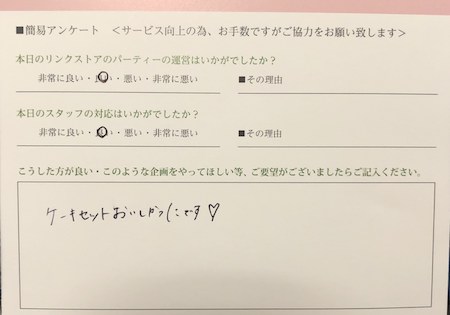 ■簡易アンケート　＜サービス向上の為、お手数ですがご協力をお願い致します＞
本日のリンクストアのパーティーの運営はいかがでしたか？
非常に良い・良い・悪い・非常に悪い　■その理由
本日のスタッフの対応はいかがでしたか？
非常に良い・良い・悪い・非常に悪い　■その理由
こうした方が良い・このような企画をやってほしい等、ご要望がございましたらご記入ください。
ケーキセットおいしかったです♡